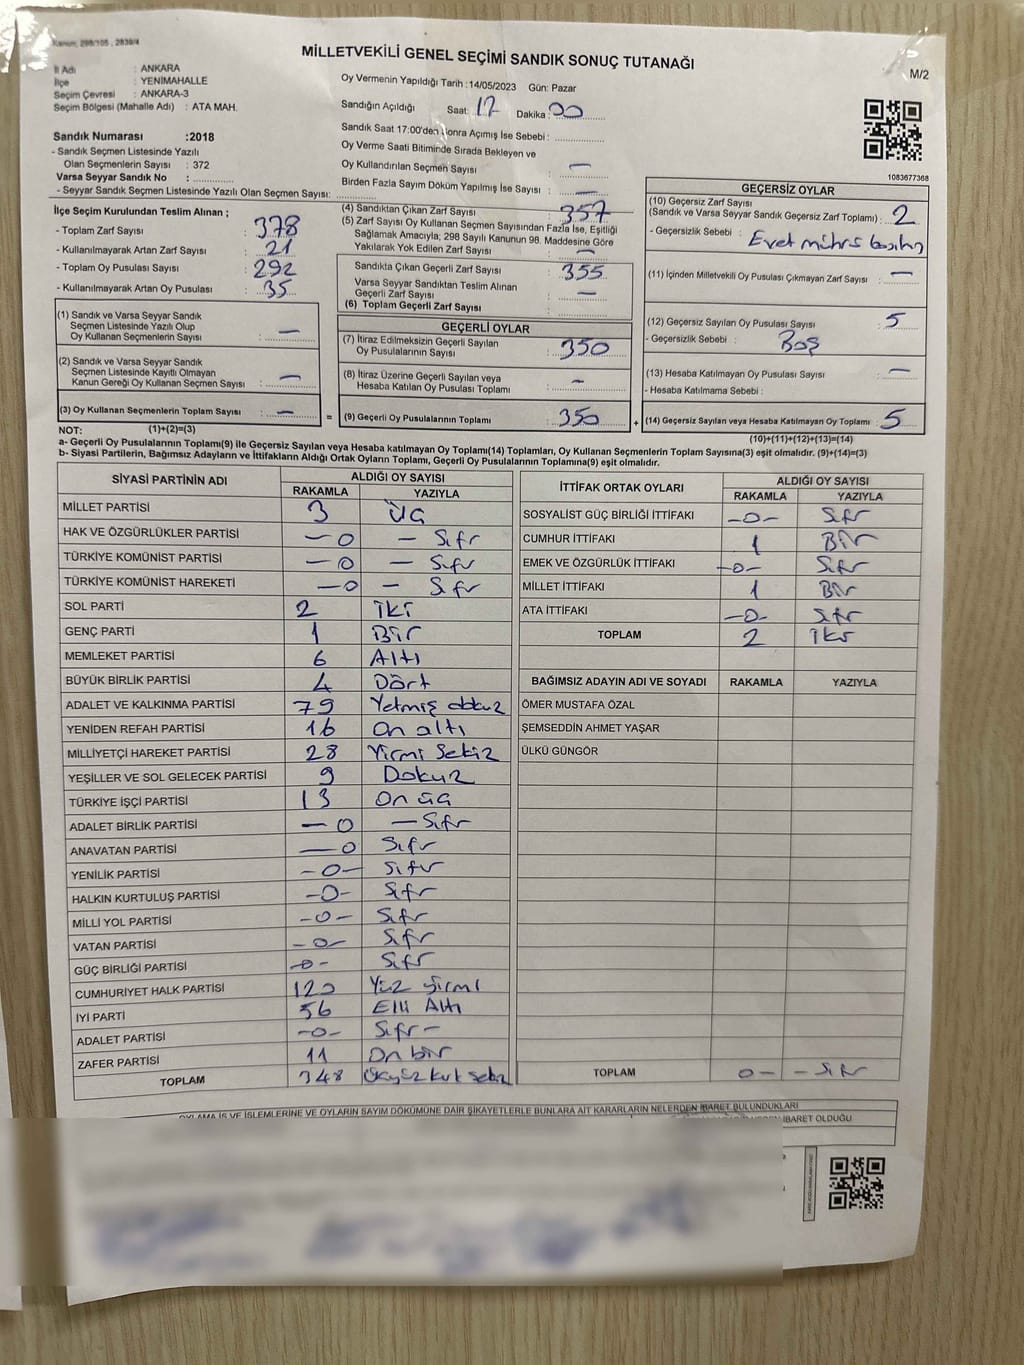 Kanun: 298/105 , 2839/4
MİLLETVEKİLİ GENEL SEÇİMİ SANDIK SONUÇ TUTANAĞI
M/2
İl Adı : ANKARA
İlçe : YENİMAHALLE
Seçim Çevresi : ANKARA-3
Seçim Bölgesi (Mahalle Adı) : ATA MAH.
Oy Vermenin Yapıldığı Tarih :14/05/2023 Gün: Pazar
Sandığın Açıldığı Saat: 17 Dakika: 00
Sandık Saat 17:00'den Sonra Açımış İse Sebebi : ..............
Oy Verme Saati Bitiminde Sırada Bekleyen ve
Oy Kullandırılan Seçmen Sayısı : —
Birden Fazla Sayım Döküm Yapılmış İse Sayısı : —
Sandık Numarası :2018
- Sandık Seçmen Listesinde Yazılı
Olan Seçmenlerin Sayısı : 372
Varsa Seyyar Sandık No : ............
- Seyyar Sandık Seçmen Listesinde Yazılı Olan Seçmen Sayısı: ............
1083677368
İlçe Seçim Kurulundan Teslim Alınan ;
- Toplam Zarf Sayısı : 378
- Kullanılmayarak Artan Zarf Sayısı : 21
- Toplam Oy Pusulası Sayısı : 292
- Kullanılmayarak Artan Oy Pusulası : 35
(1) Sandık ve Varsa Seyyar Sandık
Seçmen Listesinde Yazılı Olup
Oy Kullanan Seçmenlerin Sayısı : —
(2) Sandık ve Varsa Seyyar Sandık
Seçmen Listesinde Kayıtlı Olmayan
Kanun Gereği Oy Kullanan Seçmen Sayısı : —
(3) Oy Kullanan Seçmenlerin Toplam Sayısı : —
(4) Sandıktan Çıkan Zarf Sayısı : 357
(5) Zarf Sayısı Oy Kullanan Seçmen Sayısından Fazla İse, Eşitliği
Sağlamak Amacıyla, 298 Sayılı Kanunun 98. Maddesine Göre
Yakılarak Yok Edilen Zarf Sayısı : —
Sandıkta Çıkan Geçerli Zarf Sayısı : 355
Varsa Seyyar Sandıktan Teslim Alınan
Geçerli Zarf Sayısı : —
(6) Toplam Geçerli Zarf Sayısı : ............
GEÇERLİ OYLAR
(7) İtiraz Edilmeksizin Geçerli Sayılan
Oy Pusulalarının Sayısı : 350
(8) İtiraz Üzerine Geçerli Sayılan veya
Hesaba Katılan Oy Pusulası Toplamı : —
= (9) Geçerli Oy Pusulalarının Toplamı : 350
GEÇERSİZ OYLAR
(10) Geçersiz Zarf Sayısı
(Sandık ve Varsa Seyyar Sandık Geçersiz Zarf Toplamı) : 2
- Geçersizlik Sebebi : Evet mührü basılmış
(11) İçinden Milletvekili Oy Pusulası Çıkmayan Zarf Sayısı : —
(12) Geçersiz Sayılan Oy Pusulası Sayısı : 5
- Geçersizlik Sebebi : Boş
(13) Hesaba Katılmayan Oy Pusulası Sayısı : —
- Hesaba Katılmama Sebebi :
+ (14) Geçersiz Sayılan veya Hesaba Katılmayan Oy Toplamı : 5
NOT: (1)+(2)=(3)
(10)+(11)+(12)+(13)=(14)
a- Geçerli Oy Pusulalarının Toplamı(9) ile Geçersiz Sayılan veya Hesaba katılmayan Oy Toplamı(14) Toplamları, Oy Kullanan Seçmenlerin Toplam Sayısına(3) eşit olmalıdır. (9)+(14)=(3)
b- Siyasi Partilerin, Bağımsız Adayların ve İttifakların Aldığı Ortak Oyların Toplamı, Geçerli Oy Pusulalarının Toplamına(9) eşit olmalıdır.
SİYASİ PARTİNİN ADI ALDIĞI OY SAYISI
RAKAMLA YAZIYLA
MİLLET PARTİSİ 3 Üç
HAK VE ÖZGÜRLÜKLER PARTİSİ — 0 — Sıfır
TÜRKİYE KOMÜNİST PARTİSİ — 0 — Sıfır
TÜRKİYE KOMÜNİST HAREKETİ — 0 — Sıfır
SOL PARTİ 2 iki
GENÇ PARTİ 1 Bir
MEMLEKET PARTİSİ 6 Altı
BÜYÜK BİRLİK PARTİSİ 4 Dört
ADALET VE KALKINMA PARTİSİ 79 Yetmiş dokuz
YENİDEN REFAH PARTİSİ 16 On altı
MİLLİYETÇİ HAREKET PARTİSİ 28 Yirmi Sekiz
YEŞİLLER VE SOL GELECEK PARTİSİ 9 Dokuz
TÜRKİYE İŞÇİ PARTİSİ 13 On üç
ADALET BİRLİK PARTİSİ — 0 — Sıfır
ANAVATAN PARTİSİ — 0 Sıfır
YENİLİK PARTİSİ - 0 - Sıfır
HALKIN KURTULUŞ PARTİSİ -0- Sıfır
MİLLİ YOL PARTİSİ -0- Sıfır
VATAN PARTİSİ -0- Sıfır
GÜÇ BİRLİĞİ PARTİSİ -0- Sıfır
CUMHURİYET HALK PARTİSİ 120 Yüz yirmi
İYİ PARTİ 56 Elli Altı
ADALET PARTİSİ -0- Sıfır -
ZAFER PARTİSİ 11 On bir
TOPLAM 348 Üçyüz kırk sekiz
İTTİFAK ORTAK OYLARI ALDIĞI OY SAYISI
RAKAMLA YAZIYLA
SOSYALİST GÜÇ BİRLİĞİ İTTİFAKI -0- Sıfır
CUMHUR İTTİFAKI 1 Bir
EMEK VE ÖZGÜRLÜK İTTİFAKI -0- Sıfır
MİLLET İTTİFAKI 1 Bir
ATA İTTİFAKI -0- Sıfır
TOPLAM 2 iki
BAĞIMSIZ ADAYIN ADI VE SOYADI RAKAMLA YAZIYLA
ÖMER MUSTAFA ÖZAL
ŞEMSEDDİN AHMET YAŞAR
ÜLKÜ GÜNGÖR
TOPLAM 0 - - Sıfır
OYLAMA İŞ VE İŞLEMLERİNE VE OYLARIN SAYIM DÖKÜMÜNE DAİR ŞİKAYETLERLE BUNLARA AİT KARARLARIN NELERDEN İBARET BULUNDUKLARI
İBARET OLDUĞU